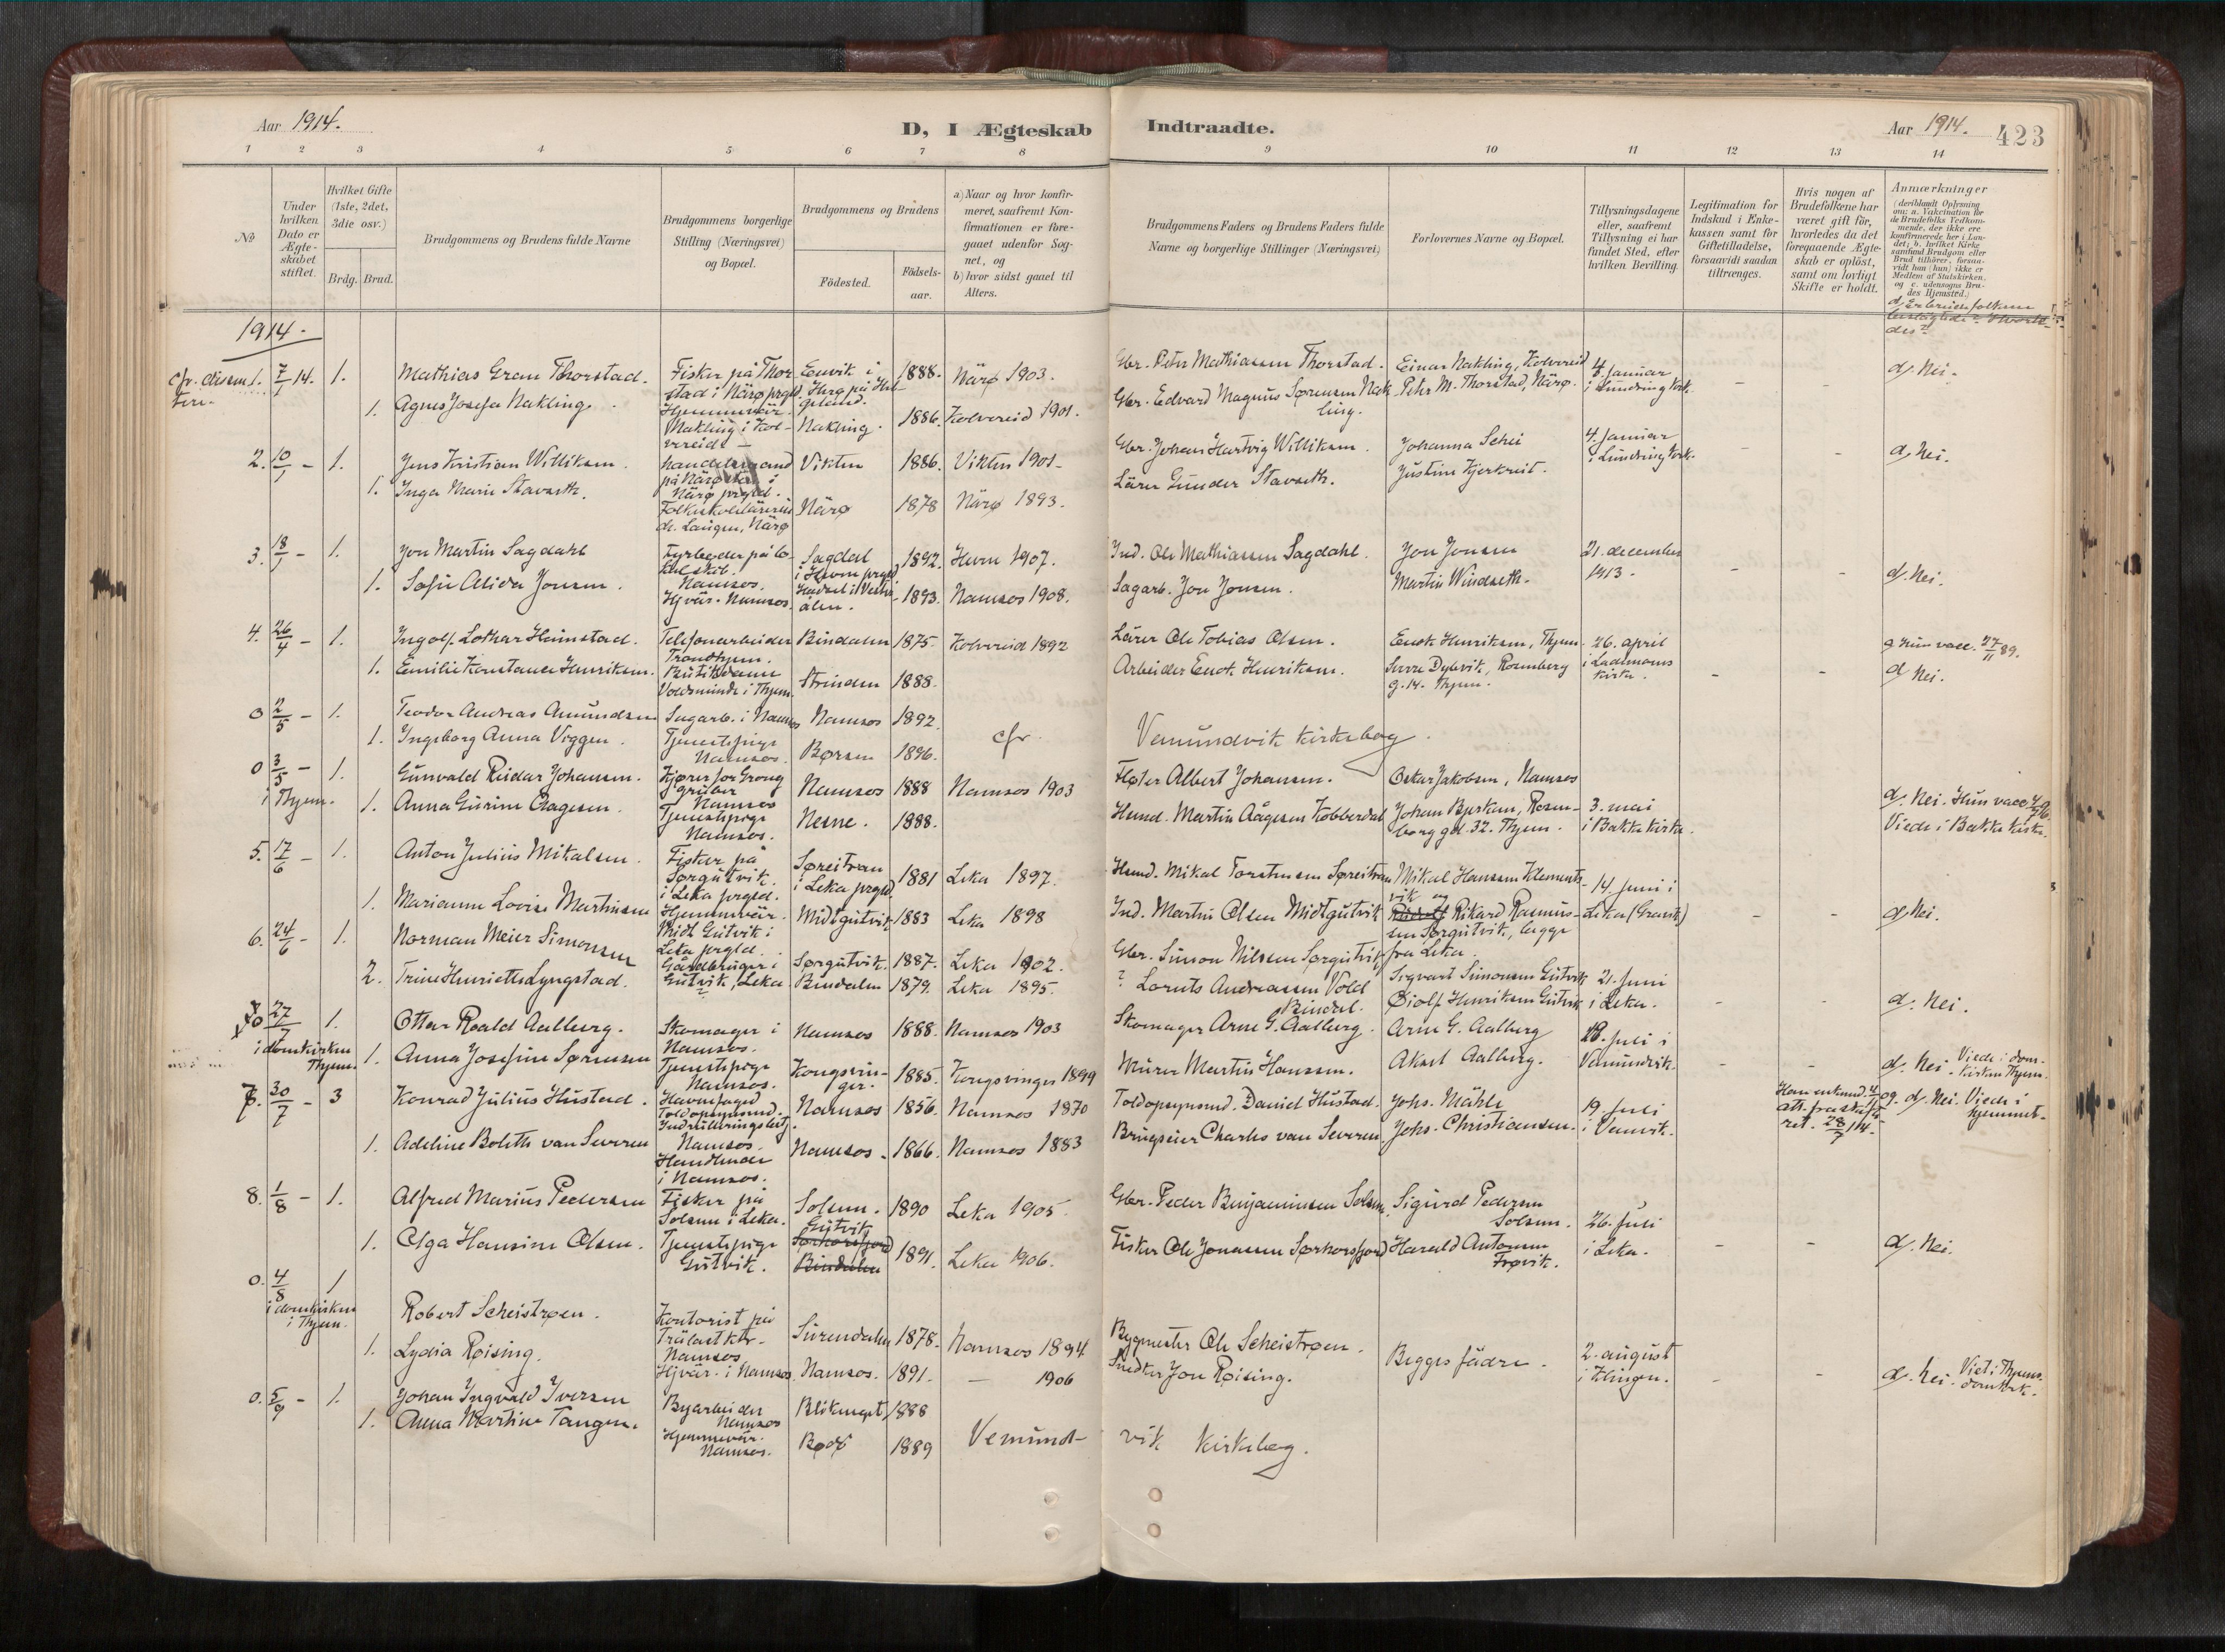 Aar 1914.
D, I Ægteskab Indtraadte.
Aar 1914. 423
1 2 3 4 5 6 7 8 9 10 11 12 13 14
No
Under hvilken Dato er Ægteskabet stiftet.
Hvilket Gifte (1ste, 2det, 3die osv.)
Brdg. Brud.
Brudgommens og Brudens fulde Navne
Brudgommens borgerlige Stilling (Næringsvei) og Bopæl.
Brudgommens og Brudens
Fødested.
Fødselsaar.
a) Naar og hvor konfirmeret, saafremt Konfirmationen er foregaaet udenfor Sognet, og
b) hvor sidst gaaet til Alters.
Brudgommens Faders og Brudens Faders fulde Navne og borgerlige Stillinger (Næringsvei)
Forlovernes Navne og Bopæl.
Tillysningsdagene eller, saafremt Tillysning ei har fundet Sted, efter hvilken Bevilling.
Legitimation for Indskud i Enkekassen samt for Giftetilladelse, forsaavidt saadan tiltrænges.
Hvis nogen af Brudefolkene har været gift før, hvorledes da det foregaaende Ægteskab er opløst, samt om lovligt Skifte er holdt.
Anmærkninger
(deriblandt Oplysning om: a. Vakcination for de Brudefolks Vedkommende, der ikke ere konfirmerede her i Landet; b. hvilket Kirkesamfund Brudgom eller Brud tilhører, forsaavidt han (hun) ikke er Medlem af Statskirken. og c. udensogns Brudes Hjemsted.)
1914.
1. 7/1 14. 1. Mathias Gram Thorstad. Fisker på Thorstad i Nærø prgld. 1888. Nærø 1903. Gbr. Peter Mathiassen Thorstad. Einar Nakling, Kolvereid 4. Januar d. Nei.
1. Agnes Josefa Nakling. Hjemmevær. Nakling i Kolvereid Nakling. 1886. Kolvereid 1901. Gbr. Edvard Magnus Sørensen Nakling. Peter M. Thorstad, Nærø. – –
2. 10/1 – 1. Jens Kristian Williksen. Handelsmand på i Nærø prgld. Vikten 1886. Vikten 1901 Gbr. Johan Hartvig Williksen. Johanna Schei 4. Januar – – d. Nei.
1. Inga Marie Stavseth. Nærø 1878 Nærø 1893. Lærer Gunder Stavseth. Justine Kjerkreit.
3. 18/1 – 1. Jon Martin Sagdahl Fyrbøder på Sagdal i Hevne prgld. 1892. Hevne 1907. Ind. Ole Mathiassen Sagdahl. Jon Jonsen 21. december 1913. – – d. Nei.
1. Sofie Alida Jonsen. Namsos. Hjvær. Namsos. 1893. Namsos 1908. Sagarb. Jon Jonsen. Martin Windseth.
4. 26/4 – 1. Ingolf Lothar Heimstad. Telefonarbeider Trondhjem. Bindalen 1875. Kolvereid 1892 Lærer Ole Tobias Olsen. Enok Henriksen, Thjem. 26. april i Lademoens kirke. Hun vacc. 27/11 89.
1. Emilie Konstance Henriksen. Voldsminde i Thjem. Strinden 1888. Arbeider Enok Henriksen. Sverre Dybvik, Rosenborg g. 14. Thjem. – – d. Nei.
0 2/5 – 1. Teodor Andreas Amundsen Sagarb. i Namsos Namsos 1892. cfr. Vemundvik kirkebog.
1. Ingeborg Anna Viggen. Tjenestepige Namsos. Børsen 1896.
0 3/5 – 1. Gunvald Reidar Johansen. Kjører for Grong gruber Namsos Namsos 1888 Namsos 1903 Fløter Albert Johansen. Oskar Jakobsen, Namsos
i Thjem. 1. Anna Gurine Aagesen. Tjenestepige Namsos. Nesne. 1888. Husmd. Martin Aagesen Kobberdal Johan Bjerkan, Rosenborg gd. 32. Thjem. 3. mai i Bakke kirke. d. Nei. Hun vacc. Viede i Bakke Kirke.
5. 17/6 – 1. Anton Julius Mikalsen. Fisker på Sørgutvik. i Leka prgld. Søreitran i Leka prgld. 1881 Leka 1897. Husmd. Mikal Torstensen Søreitran Mikal Hanssen Klementsvik og 14. juni i Leka
1. Marianne Lovise Martinsen Hjemmevær. Midt Gutvik i Leka prgld. Midtgutvik 1883 Leka 1898 Ind. Martin Olsen Midtgutvik Rikard Rasmussen Sørgutvik, begge fra Leka. – – d. Nei.
6. 24/6 – 1. Norman Meier Simonsen Gårdbruger i Gutvik, Leka Sørgutvik. 1887. Leka 1902. Gbr. Simon Nilssen Sørgutvik Sigvart Simonsen Gutvik 21. juni i Leka. – – d. Nei.
2. Trine Henriette Lyngstad. Bindalen 1879. Leka 1895. ? Lornts Andreassen Vold Bindal. Eiolf Henriksen Gutvik
0 27/7 1. Ottar Roald Aalberg. Skomager i Namsos. Namsos 1888. Namsos 1903 Skomager Arne G. Aalberg. Arne G. Aalberg 18. juli i Vemundvik.
i domkirken Thjem. 1. Anna Josefine Sørensen Tjenestepige Namsos. Kongsvinger. 1885. Kongsvinger 1899 Murer Martin Hanssen. Aksel Aalberg. d. Nei. Viede i domkirken Thjem.
7. 30/7 – 3 Konrad Julius Hustad. Havnefoged Toldopsynsmd. Namsos. Namsos 1856. Namsos 1870 Toldopsynsmd. David Hustad. Johs. Mæhle 19. juli i Vemvik. Han enkemd. 4/11 09. att. fra skifteret. 28/7 14. d. Nei. Viede i hjemmet.
1. Adeline Bolette van Severen Handlende i Namsos. Namsos. 1866. Namsos 1883 Brugseier Charles van Severen. Johs. Christiansen.
8. 1/8 – 1. Alfred Marius Pedersen Fisker på Solsem i Leka. Solsem. 1890 Leka 1905. Gbr. Peder Benjaminsen Solsem Sigurd Pedersen Solsem. 26. juli i Leka. – – d. Nei.
1. Olga Hansine Olsen. Tjenestepige Gutvik. Gutvik Sørhorsfjord Bindalen 1891. Leka 1906. Fisker Ole Jonassen Sørhorsfjord Harald Antonsen Frøvik.
0. 4/8 1
i domkirken i Thjem. Robert Scheistrøen. Kontorist på Namsos Surendalen 1878. Namsos 1894 Bygmester Ole Scheistrøen. Begges fædre. 2. august i Klingen. – – d. Nei. Viet i Thjems. domkirk.
1. Lydia Røising. Hjvær. i Namsos Namsos. 1891. – 1906 Snedker Jon Røising.
0. 5/9 – 1. Johan Yngvald Iversen Byarbeider Namsos 1888
1. Anna Martine Tangen. Hjemmevær. Namsos. Bodø 1889 Vemundvik kirkebog.